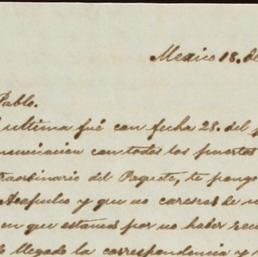 Mexico 18. de
Pablo.
ultima fué con fecha 28. del p
municacion con todos los puertos
traordinario del Paquete, te pongo
Acapulco y que no careras de n
en que estamos por no haber reci
llegado la correspondencia y